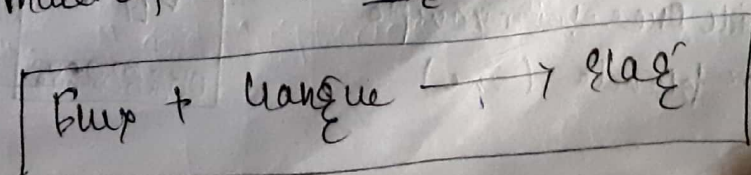 Flux + Gangue → Slag